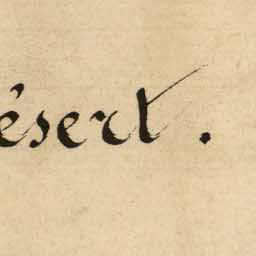 ésert.